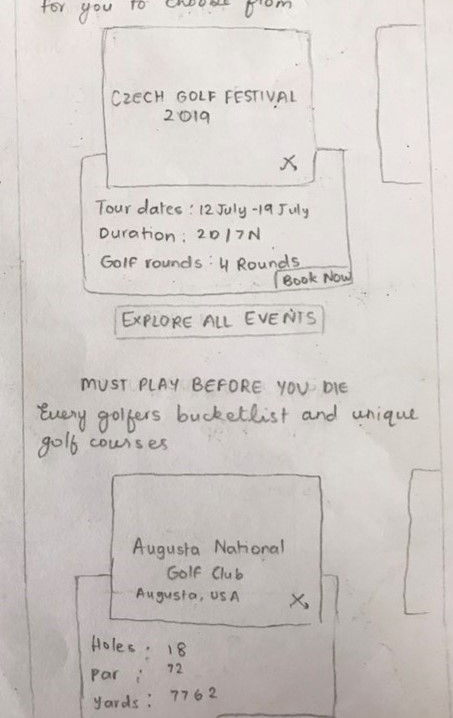 for you to choose from
CZECH GOLF FESTIVAL
2019
X
Tour dates : 12 July -19 July
Duration : 2D/7N
Golf rounds : 4 Rounds
Book Now
EXPLORE ALL EVENTS
MUST PLAY BEFORE YOU DIE
Every golfers bucketlist and unique
golf courses
Augusta National
Golf Club
Augusta, USA
X
Holes : 18
Par : 72
yards : 7762